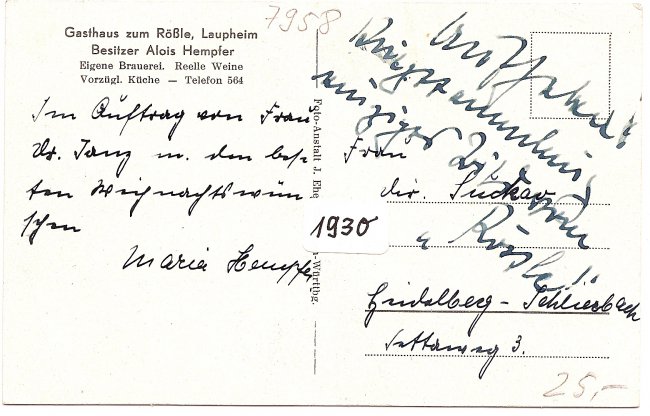 7958
Gasthaus zum Rößle, Laupheim
Besitzer Alois Hempfer
Eigene Brauerei. Reelle Weine
Vorzügl. Küche — Telefon 564
Im Auftrag von Frau
Dr. Janz m. den bes-
ten Weihnachtswün-
schen
Maria Hempfer
Foto-Anstalt J. Ehe
n-Württbg.
1930
einziges
vom
" Rößle"
Frau
Dir. Suckow
Heidelberg-Schlierbach
25,-